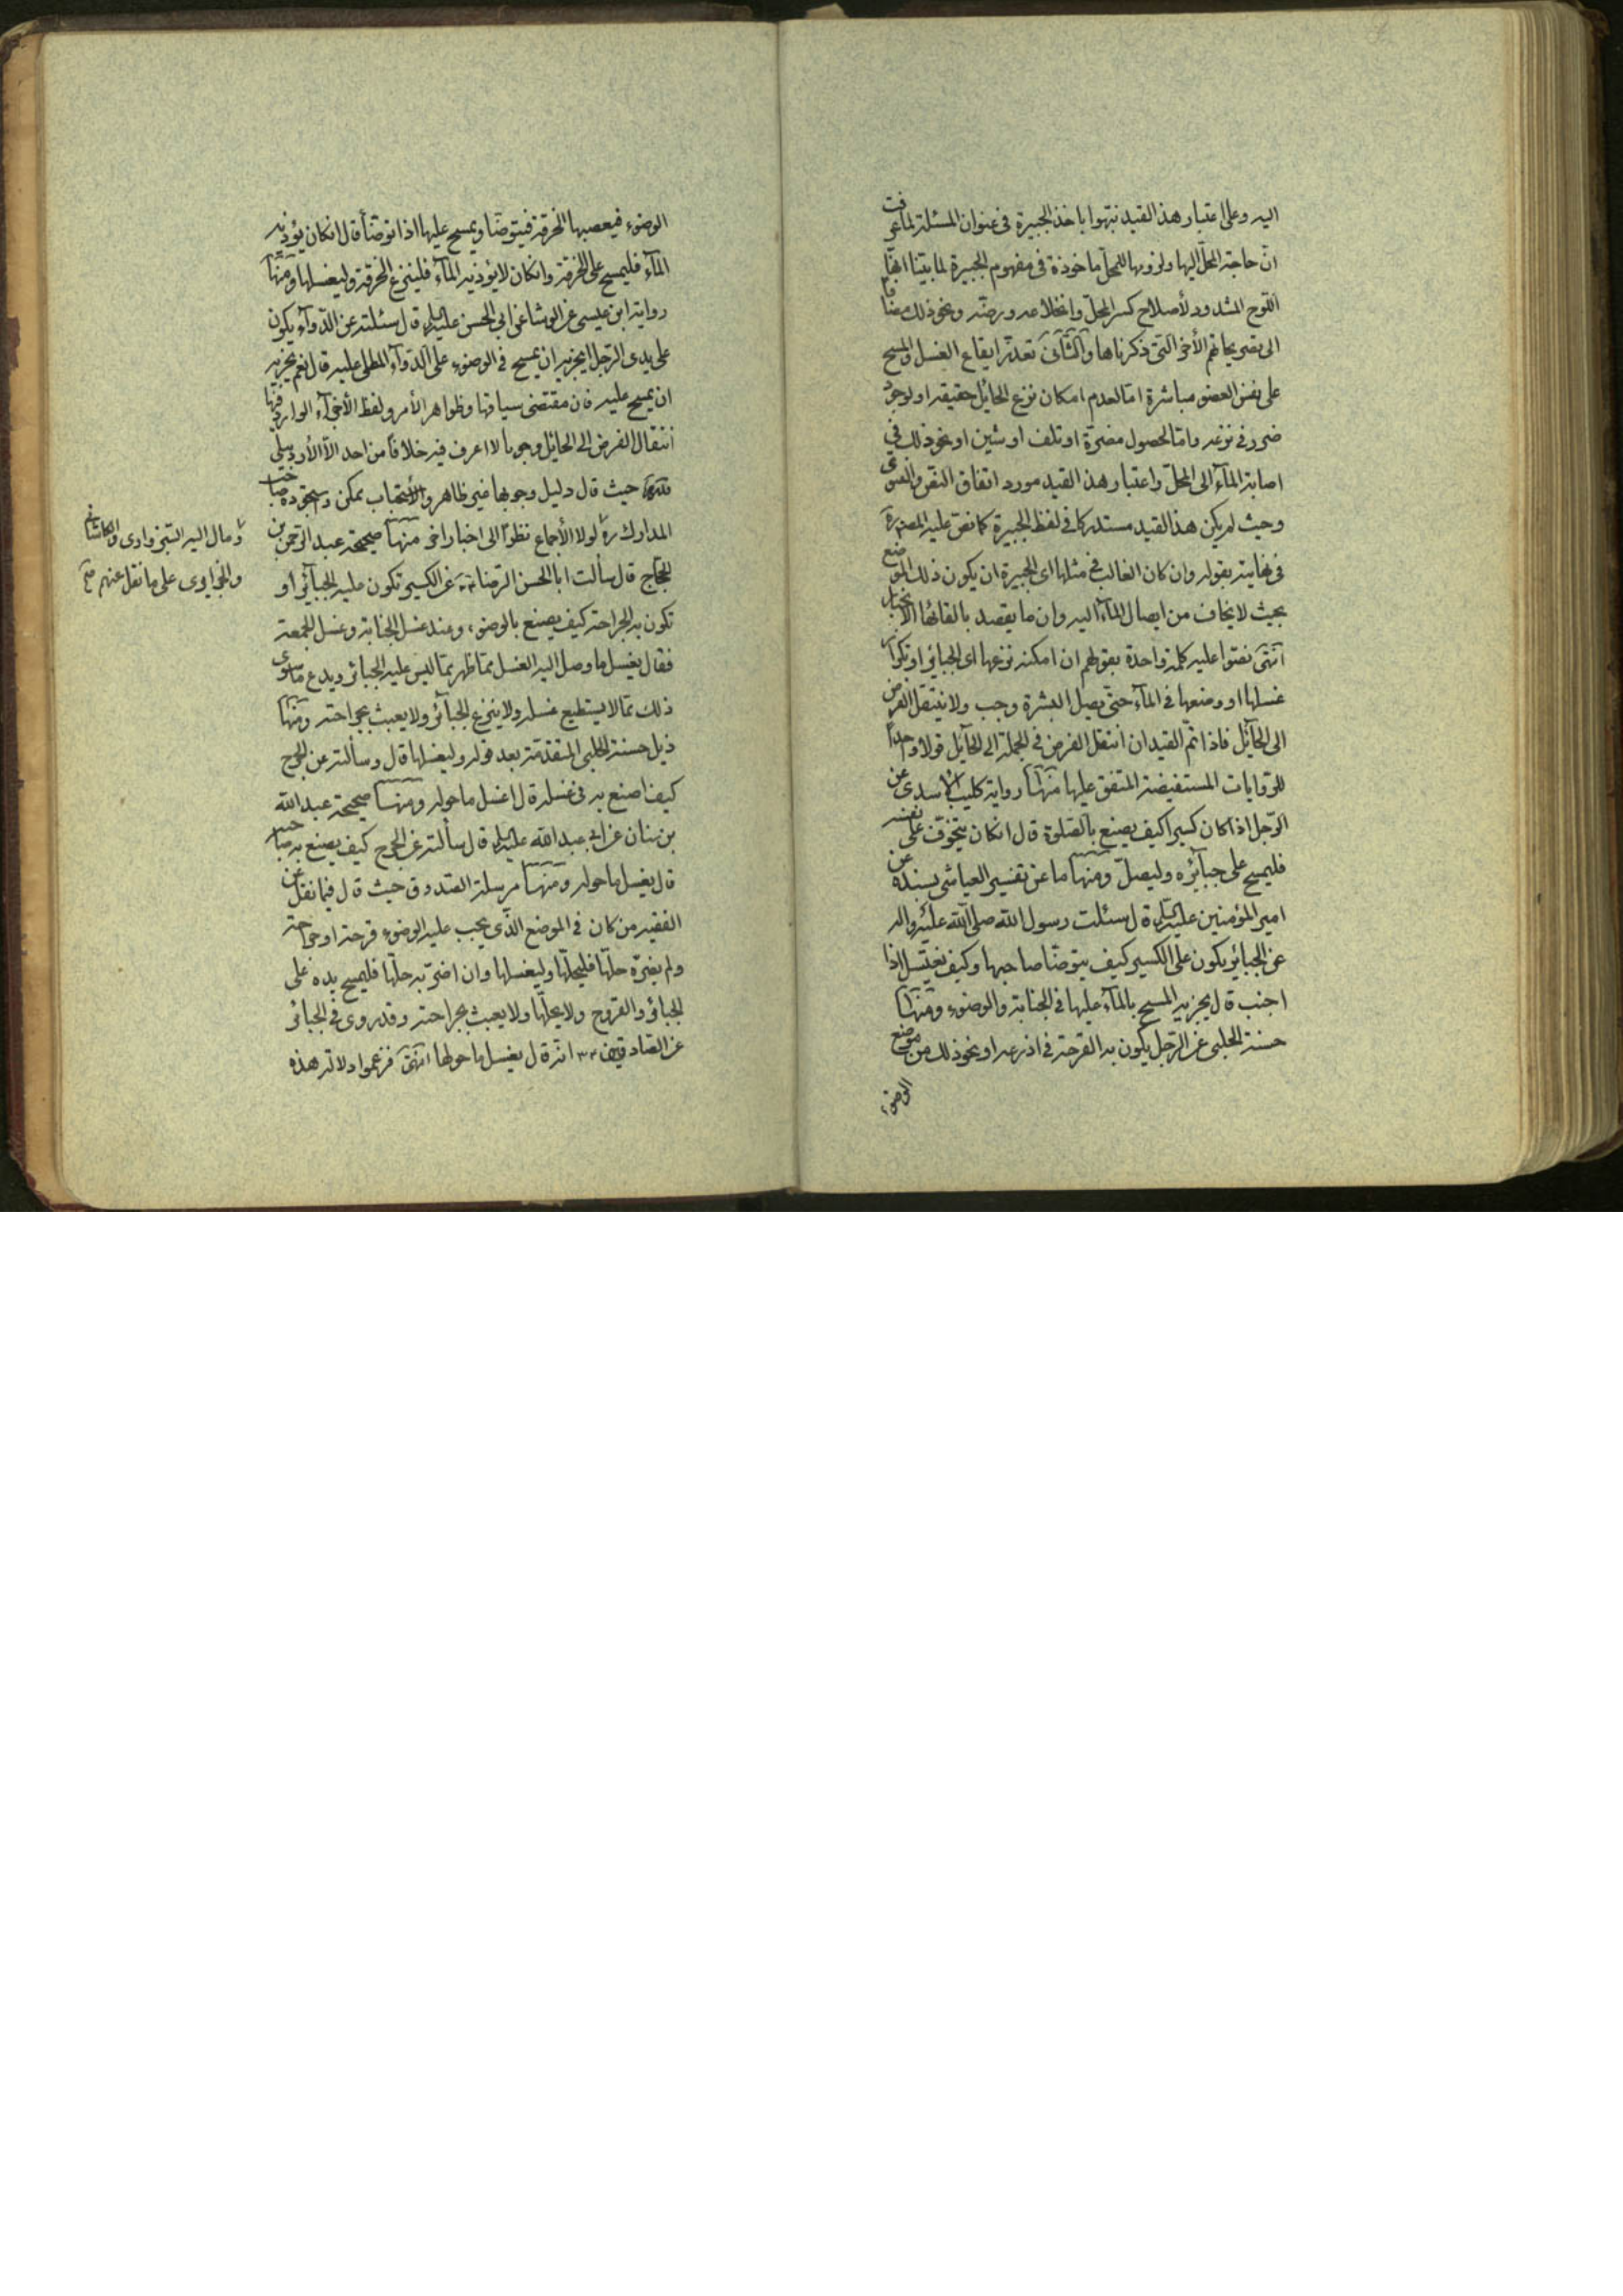 اليه وعلى اعتبار هذا القيد نبهوا باخذ الجبيرة في عنوان المسئلة لما عرفت
ان حاجة المحل اليها ولزومها للمحل ماخوذة في مفهوم الجبيرة لما بينا انها
اللوح المشدود لأصلاح كسر المحل وانخلاعه ورضه ونحو ذلك مضافا
الى تصريحاتهم الأخر التي ذكرناها والثاني تعذر ايقاع الغسل والمسح
على نفس العضو مباشرة اما لعدم امكان نزع الحائل حقيقة او لوجود
ضرر في نزعه واما لحصول مضرة او تلف او شين او نحو ذلك في
اصابة المآء الى المحل واعتبار هذا القيد مورد اتفاق النص والفتوى
وحيث لم يكن هذا القيد مستدركا في لفظ الجبيرة كما نص عليه المصنف ره
في نهايته بقوله وان كان الغالب في مثلها اى الجبيرة ان يكون ذلك الموضع
بحيث لا يخاف من ايصال المآء اليه وان ما يقصد بالقائها الانجبار
انتهى نصوا عليه كلمة واحدة بقولهم ان امكنه نزعها اى الجبائر او تكرار
غسلها او وضعها في المآء حتى يصل البشرة وجب ولا ينتقل الفرض
الى الحآئل فاذا تم القيدان انتقل الفرض في الجملة الى الحآئل قولا واحدا
للروايات المستفيضة المتفق عليها منها رواية كليب الاسدى عن
الرجل اذا كان كسيرا كيف يصنع بالصلوة قال ان كان يتخوف على نفسه
فليمسح على جبآئره وليصل ومنها ما عن تفسير العياشى بسنده عن
امير المؤمنين عليه السلم قال سئلت رسول الله صلى الله عليه واله
عن الجبائر يكون على الكسير كيف يتوضا صاحبها وكيف يغتسل اذا
اجنب قال يجزيه المسح بالمآء عليها في الجنابة والوضوء ومنها
حسنة الحلبى عن الرجل يكون به القرحة في اذرعه او نحو ذلك من موضع
الوضوء
الوضوء فيعصبها الخرقة فيتوضا ويمسح عليها اذا توضأ قال ان كان يؤذيه
المآء فليمسح على الخرقة وان كان لا يؤذيه المآء فلينزع الخرقة وليغسلها ومنها
رواية ابن عيسى عن الوشا عن ابي الحسن عليه السلم قال سئلته عن الدوآء يكون
على يدى الرجل ايجزيه ان يمسح في الوضوء على الدوآء المطلى عليه قال نعم يجزيه
ان يمسح عليه فان مقتضى سياقها وظواهر الأمر ولفظ الأجزآء الوارد فيها
انتقال الفرض الى الحائل وجوبا لا اعرف فيه خلافا من احد الا الأردبيلى
حيث قال دليل وجوبها غير ظاهر والأستحباب ممكن وسيجوده صاحب
المدارك ره لولا الأجماع نظرا الى اخبار اخر منها صحيحة عبد الرحمن بن
الحجاج قال سألت ابا الحسن الرضا عن الكسير تكون عليه الجبآئر او
تكون به الجراحة كيف يصنع بالوضوء وعند غسل الجنابة وغسل الجمعة
فقال يغسل ما وصل اليه الغسل مما ظهر مما ليس عليه الجبائر ويدع ما سوى
ذلك مما لا يستطيع غسله ولا ينزع الجبآئر ولا يعبث بجراحته ومنها
ذيل حسنة الحلبى المتقدمة بعد قوله وليغسلها قال وسألته عن الجرح
كيف اصنع به في غسله قال اغسل ما حوله ومنها صحيحة عبد الله
بن سنان عن ابي عبد الله عليه السلم قال سألته عن الجرح كيف يصنع به صاحبه
قال يغسل ما حوله ومنها مرسلة الصدوق حيث قال فيما نقل عن
الفقيه من كان في الموضع الذى يجب عليه الوضوء قرحة او جراحة
ولم يضره حلها فليحلها وليغسلها وان اضر به حلها فليمسح يده على
الجبائر والقروح ولا يحلها ولا يعبث بجراحته وقد روى في الجبائر
عن الصادق انه قال يغسل ما حولها انتهى فزعموا دلالة هذه
ومال اليه السبزوارى والكاشاني
على ما نقل عنهم